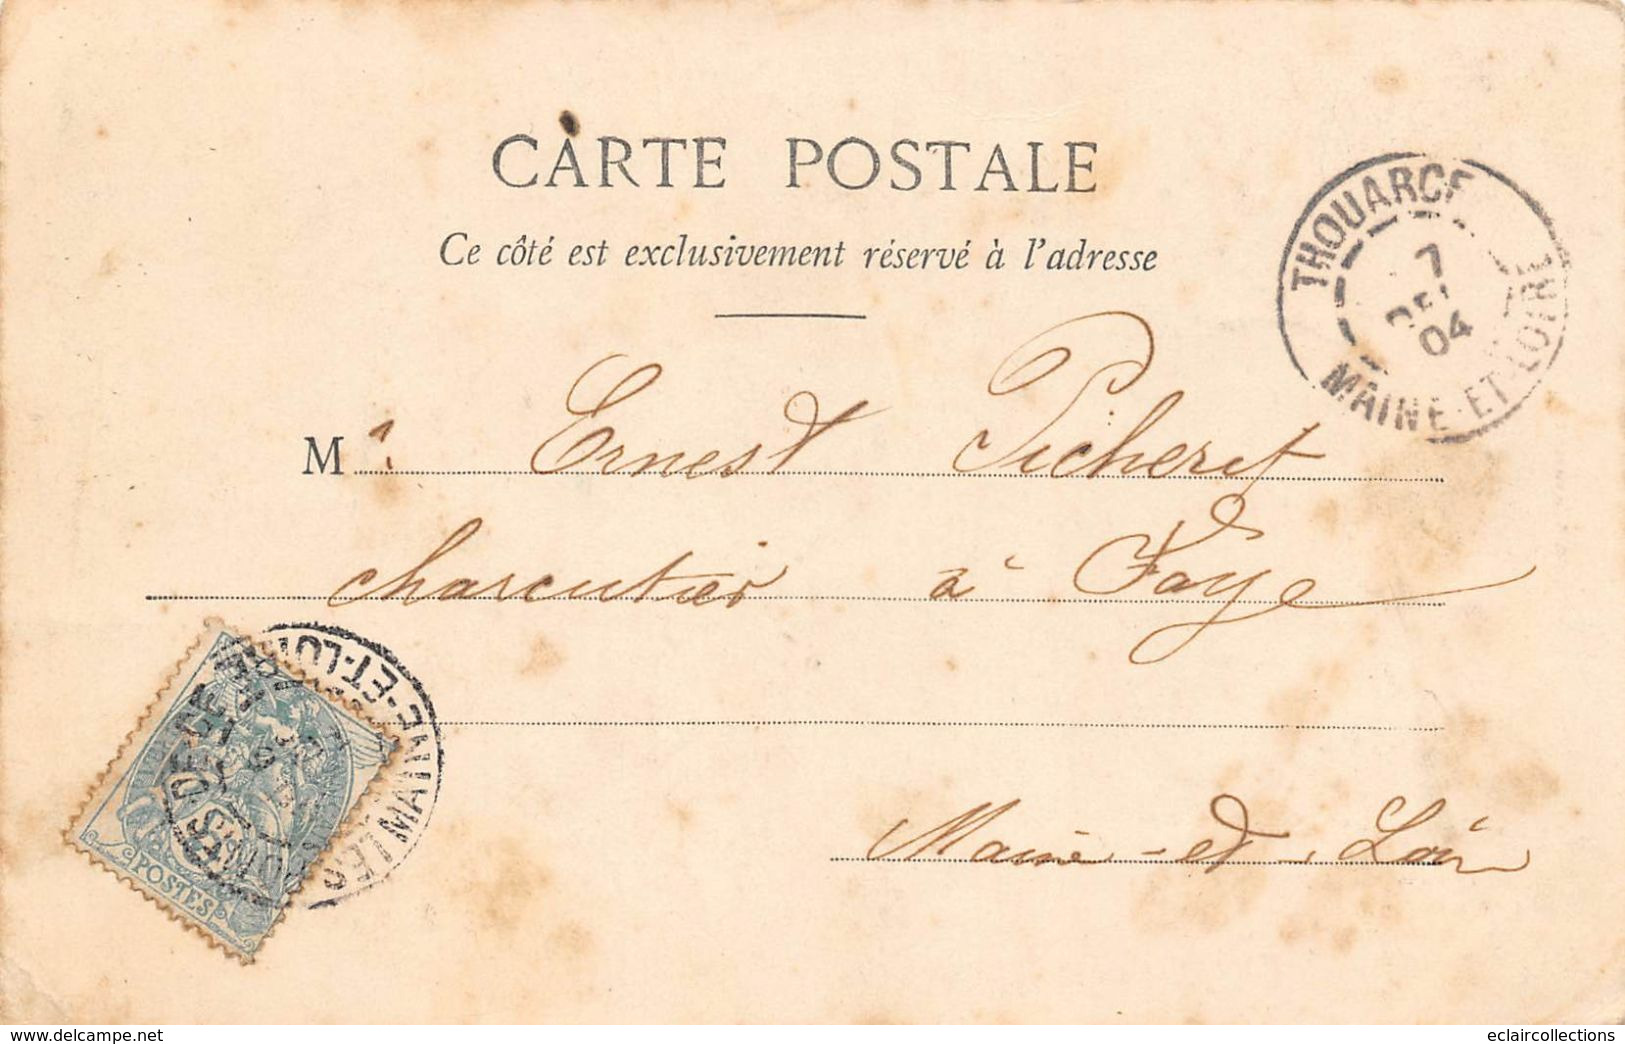 CARTE POSTALE
Ce côté est exclusivement réservé à l'adresse
THOUARCE
7
04
MAINE-ET-LOIRE
M r. Ernest Picherit
charcutier à Faye
Maine-et-Loire
POSTES
LES
delcampe.net
eclaircollections